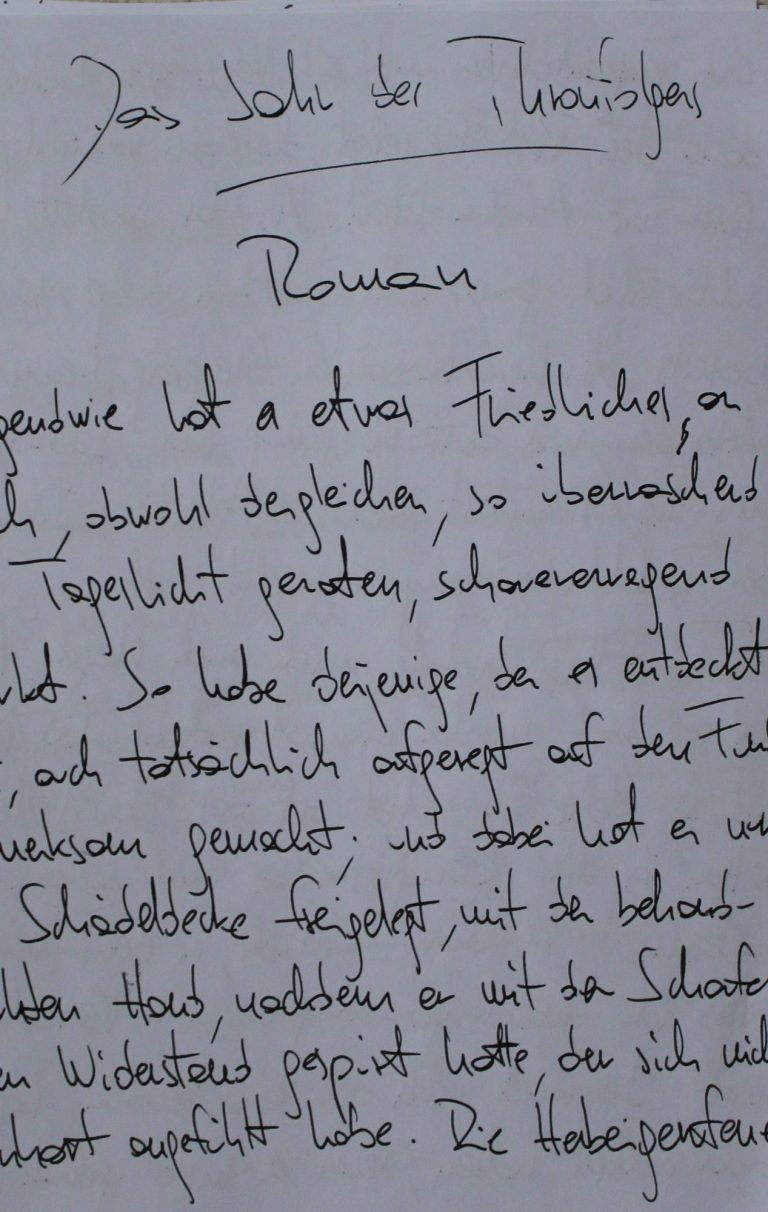 Das Jahr des Thronfolgers
Roman
gendwie hat es etwas Friedliches, an
ch, obwohl dergleichen, so überraschend
Tageslicht geraten, schauererregend
rkt. So habe derjenige, der es entdeckt
, auch tatsächlich aufgeregt auf den Fun
merksam gemacht; und dabei hat er nu
Schädeldecke freigelegt, mit der behand-
hten Hand, nachdem er mit der Schaufe
en Widerstand gespürt hatte, der sich nic
nhart angefühlt habe. Die Herbeigerufene